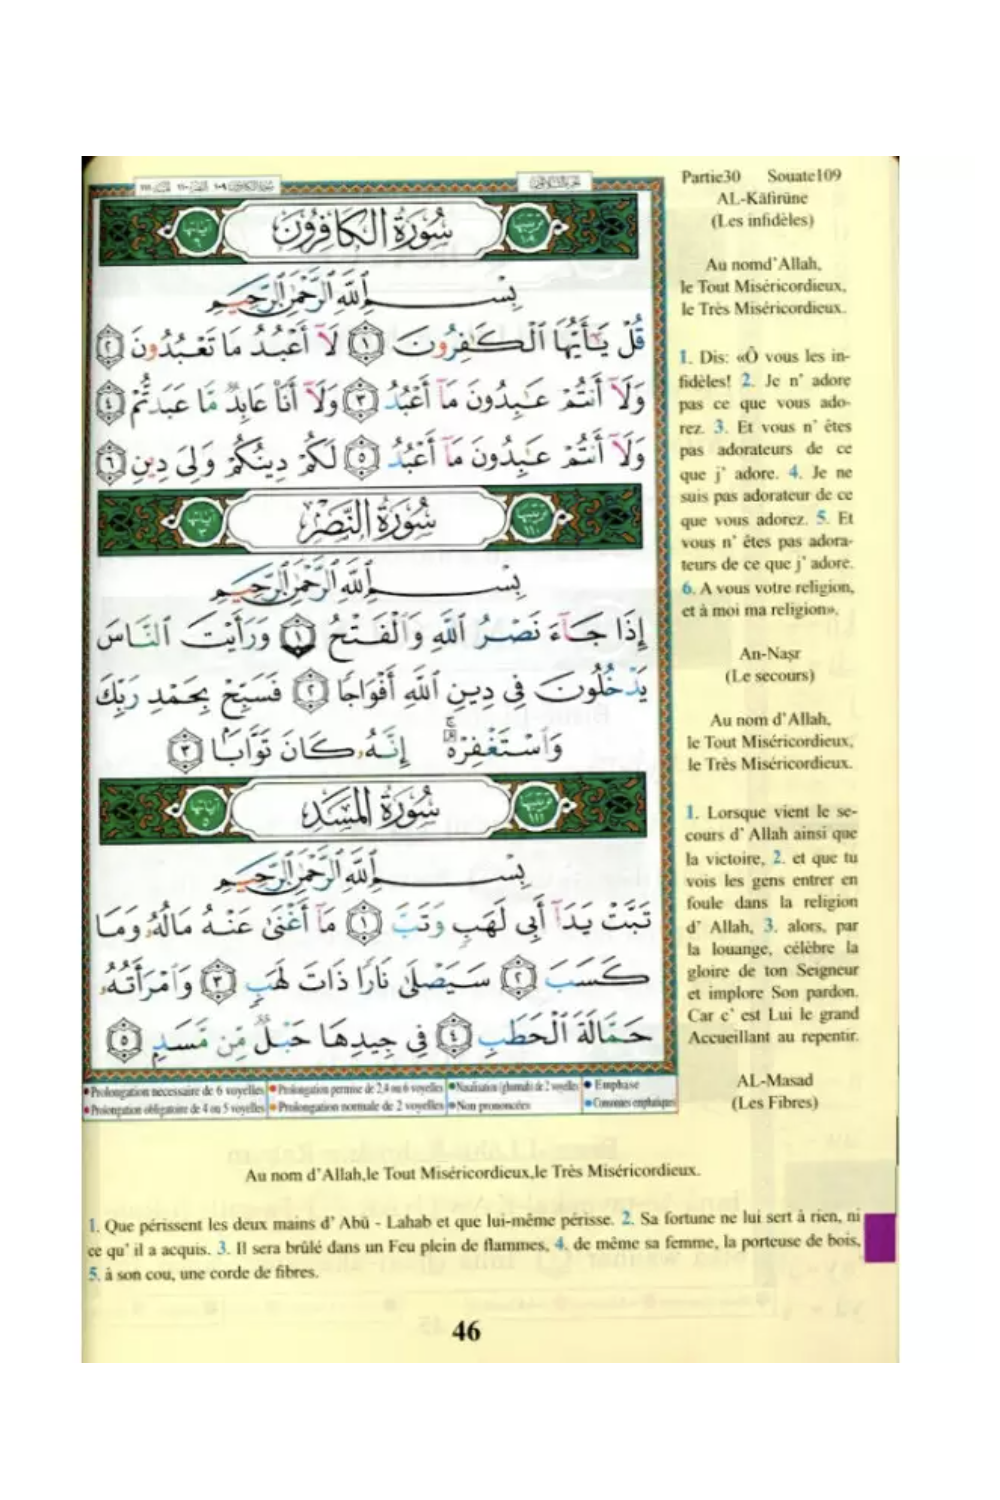 سورة الكافرون ١٠٩ النصر ١١٠ المسد ١١١
الجزء الثلاثون
ترتيبها ١٠٩
سُورَةُ الكَافِرُونَ
آياتها ٦
بِسْمِ اللَّهِ الرَّحْمَٰنِ الرَّحِيمِ
قُلْ يَٰٓأَيُّهَا ٱلْكَٰفِرُونَ ١ لَآ أَعْبُدُ مَا تَعْبُدُونَ ٢
وَلَآ أَنتُمْ عَٰبِدُونَ مَآ أَعْبُدُ ٣ وَلَآ أَنَا۠ عَابِدٌ مَّا عَبَدتُّمْ ٤
وَلَآ أَنتُمْ عَٰبِدُونَ مَآ أَعْبُدُ ٥ لَكُمْ دِينُكُمْ وَلِىَ دِينِ ٦
ترتيبها ١١٠
سُورَةُ النَّصْرِ
آياتها ٣
بِسْمِ اللَّهِ الرَّحْمَٰنِ الرَّحِيمِ
إِذَا جَآءَ نَصْرُ ٱللَّهِ وَٱلْفَتْحُ ١ وَرَأَيْتَ ٱلنَّاسَ
يَدْخُلُونَ فِى دِينِ ٱللَّهِ أَفْوَاجًا ٢ فَسَبِّحْ بِحَمْدِ رَبِّكَ
وَٱسْتَغْفِرْهُ ۚ إِنَّهُۥ كَانَ تَوَّابًۢا ٣
ترتيبها ١١١
سُورَةُ المَسَدِ
آياتها ٥
بِسْمِ اللَّهِ الرَّحْمَٰنِ الرَّحِيمِ
تَبَّتْ يَدَآ أَبِى لَهَبٍ وَتَبَّ ١ مَآ أَغْنَىٰ عَنْهُ مَالُهُۥ وَمَا
كَسَبَ ٢ سَيَصْلَىٰ نَارًا ذَاتَ لَهَبٍ ٣ وَٱمْرَأَتُهُۥ
حَمَّالَةَ ٱلْحَطَبِ ٤ فِى جِيدِهَا حَبْلٌ مِّن مَّسَدٍۭ ٥
Prolongation nécessaire de 6 voyelles Prolongation permise de 2,4 ou 6 voyelles Nasalisation (ghunnah) de 2 voyelles Emphase
Prolongation obligatoire de 4 ou 5 voyelles Prolongation normale de 2 voyelles Non prononcées Consonnes emphatiques
Partie30 Souate109
AL-Kāfirūne
(Les infidèles)
Au nomd'Allah,
le Tout Miséricordieux,
le Très Miséricordieux.
1. Dis: «Ô vous les in-
fidèles! 2. Je n' adore
pas ce que vous ado-
rez. 3. Et vous n' êtes
pas adorateurs de ce
que j' adore. 4. Je ne
suis pas adorateur de ce
que vous adorez. 5. Et
vous n' êtes pas adora-
teurs de ce que j' adore.
6. A vous votre religion,
et à moi ma religion».
An-Naṣr
(Le secours)
Au nom d'Allah,
le Tout Miséricordieux,
le Très Miséricordieux.
1. Lorsque vient le se-
cours d' Allah ainsi que
la victoire, 2. et que tu
vois les gens entrer en
foule dans la religion
d' Allah, 3. alors, par
la louange, célèbre la
gloire de ton Seigneur
et implore Son pardon.
Car c' est Lui le grand
Accueillant au repentir.
AL-Masad
(Les Fibres)
Au nom d'Allah,le Tout Miséricordieux,le Très Miséricordieux.
1. Que périssent les deux mains d' Abū - Lahab et que lui-même périsse. 2. Sa fortune ne lui sert à rien, ni
ce qu' il a acquis. 3. Il sera brûlé dans un Feu plein de flammes, 4. de même sa femme, la porteuse de bois,
5. à son cou, une corde de fibres.
46